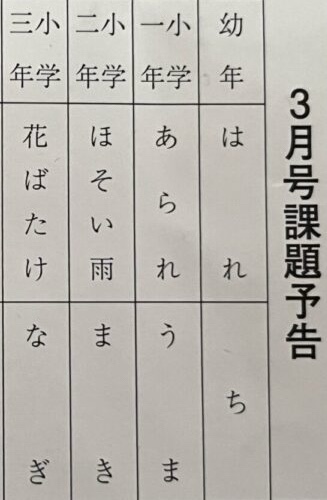 3月号課題予告
幼年
はれ
ち
小学一年
あられ
うま
小学二年
ほそい雨
まき
小学三年
花ばたけ
なぎ